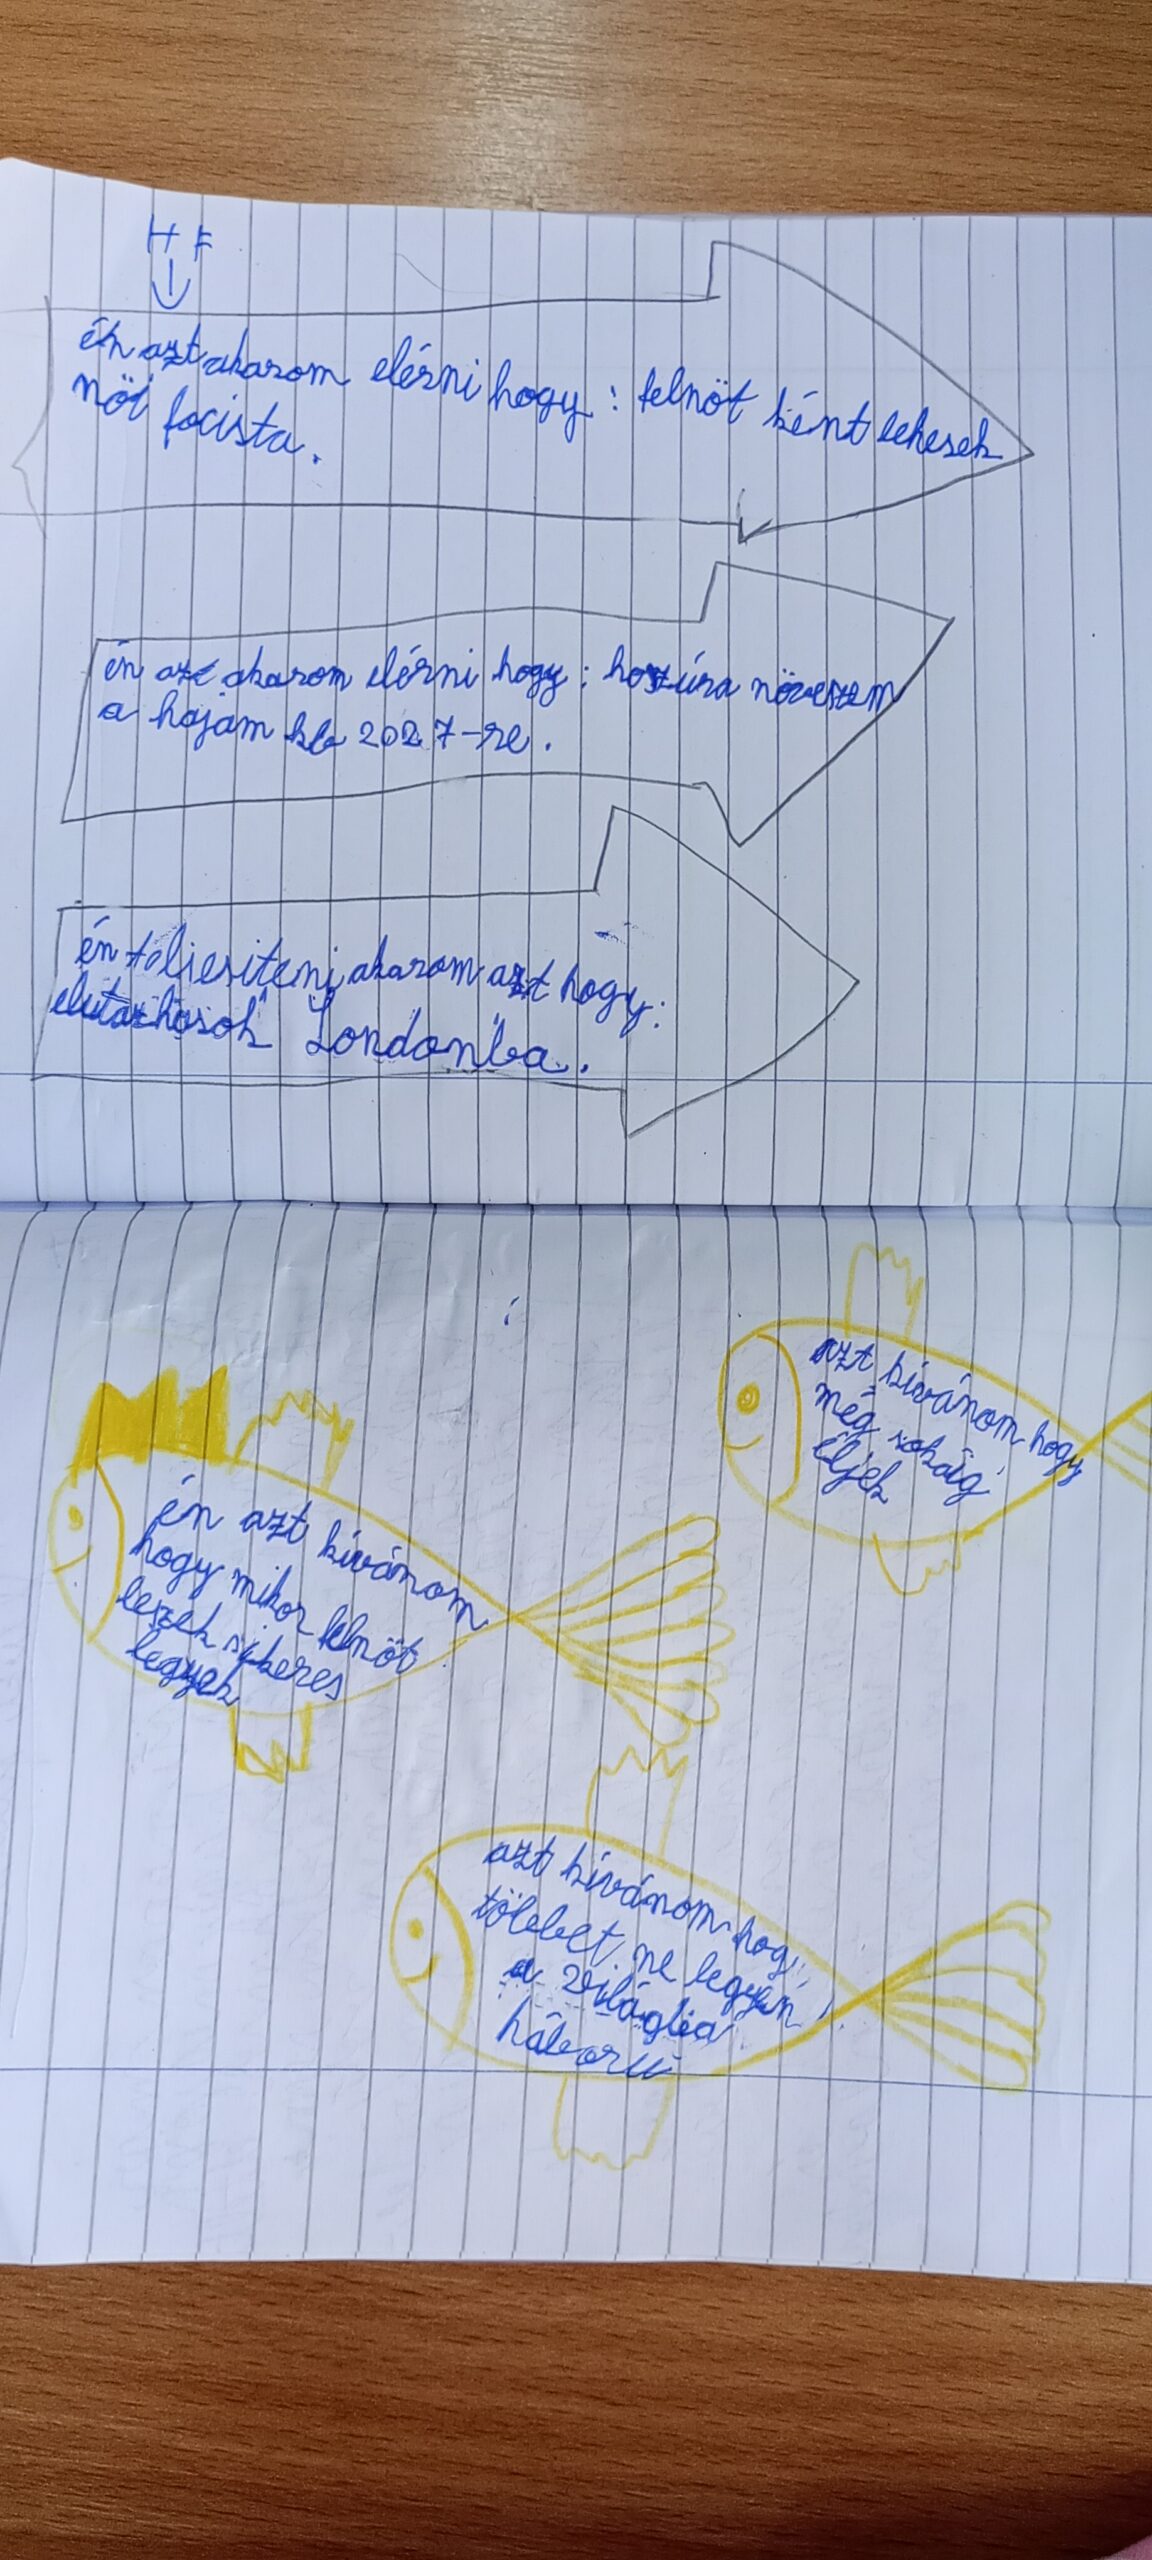 H F
én azt akarom elérni hogy: felnőt ként lehesek
női focista.
én azt akarom elérni hogy: hoszúra növeszem
a hajam kb 2027-re.
én teljesiteni akarom azt hogy:
elutazhasok Londonba.
azt kívánom hogy
még sokáig
éljek
én azt kívánom
hogy mikor felnőt
leszek sikeres
legyek
azt kívánom hogy
töbebet ne legyen
a világba
háború